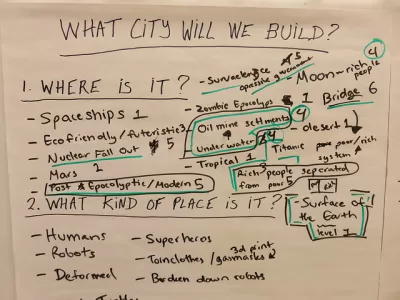 WHAT CITY WILL WE BUILD?
1. WHERE IS IT?
- Spaceships 1
- Ecofriendly/futeristic 3
- Nuclear Fall Out 5
- Mars 2
- Post Epocolyptic/Modern 5
- Survaelence 5
government
- Zombie Epocolyps 1
Oil mine setlments 9
Underwater
- Tropical 1
Rich people seperated
from poor 5
- Moon-rich people 4
Bridge 6
- desert 1
Titanic poor/rich
system
- Surface of
the Earth
level 1
2. WHAT KIND OF PLACE IS IT?
- Humans
- Robots
- Deformed
- Superheros
- Torn clothes/gasmasks 3d print
- Broken down robots